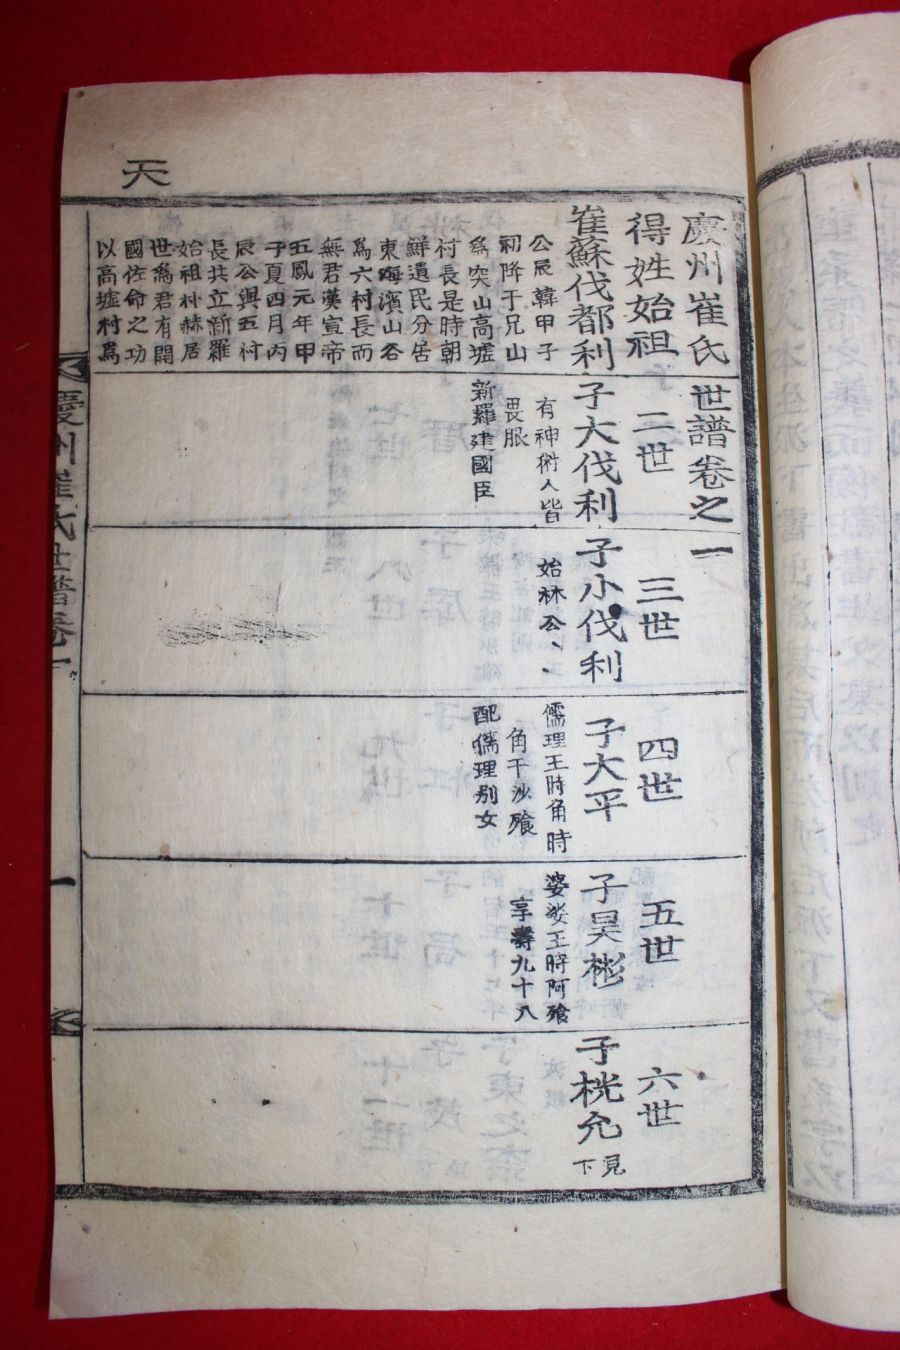 天
慶州崔氏世譜卷之一
得姓始祖
崔蘇伐都利
公辰韓甲子
初降于兄山
爲突山高墟
村長是時朝
鮮遺民分居
東海濱山谷
爲六村長而
無君漢宣帝
五鳳元年甲
子夏四月丙
辰公與五村
長共立新羅
始祖朴赫居
世爲君有開
國佐命之功
以高墟村爲
二世
子大伐利
有神術人皆
畏服
新羅建國臣
三世
子小伐利
始林公
四世
子大平
儒理王時角時
角干沙飡
配儒理別女
五世
子昊彬
婆娑王時阿飡
享壽九十八
六世
子桄允
見下
慶州崔氏世譜卷一
一